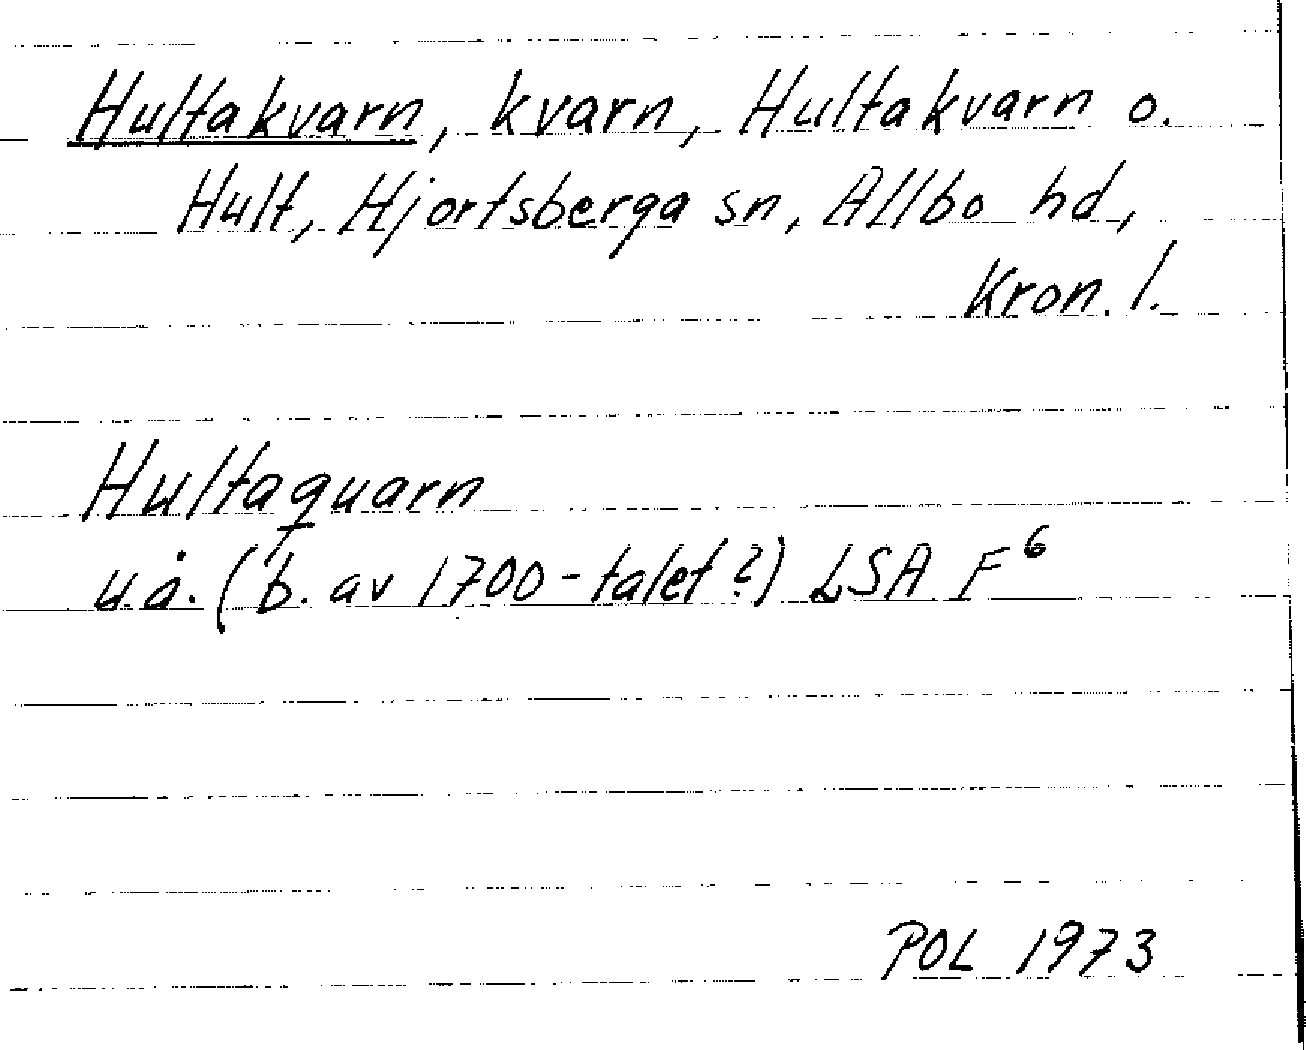 Hultakvarn, kvarn, Hultakvarn o.
Hult, Hjortsberga sn, Allbo hd,
Kron. l.
Hultaquarn
u.å. (b. av 1700-talet?) LSA F⁶
POL 1973